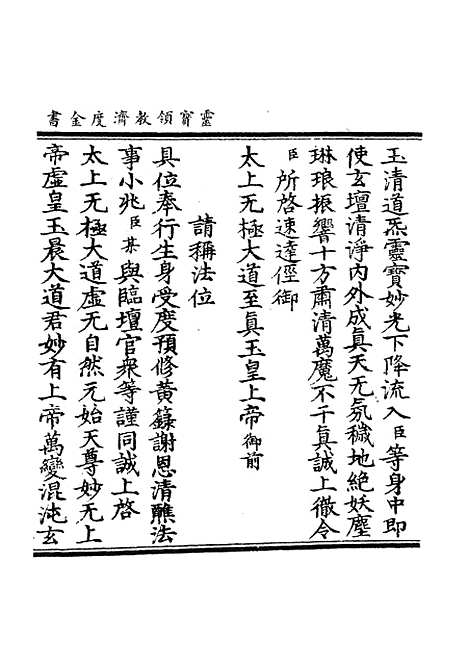 靈寳領教濟度金書
玉清道炁靈寶妙光下降流入臣等身中即
使玄壇清淨内外成真天无氛穢地絶妖塵
琳琅振響十方肅清萬魔不干真誠上徹令
臣所啓速達徑御
太上无極大道至眞玉皇上帝御前
請稱法位
具位奉行生身受度預修黃籙謝恩清醮法
事小兆臣某與臨壇官衆等謹同誠上啓
太上无極大道虛无自然元始天尊妙无上
帝虛皇玉晨大道君妙有上帝萬變混沌玄